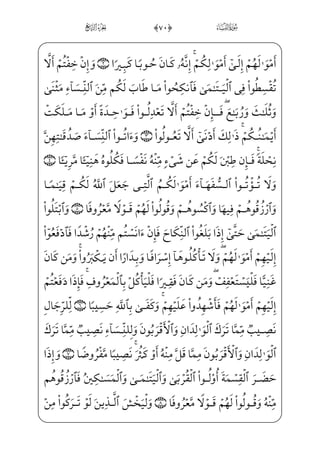 الجزء الرابع ﴿٧٠﴾ سورة النساء
أَمْوَٰلَهُمْ إِلَىٰٓ أَمْوَٰلِكُمْ ۚ إِنَّهُۥ كَانَ حُوبًا كَبِيرًا ۝ وَإِنْ خِفْتُمْ أَلَّا
تُقْسِطُوا۟ فِى ٱلْيَتَـٰمَىٰ فَٱنكِحُوا۟ مَا طَابَ لَكُم مِّنَ ٱلنِّسَآءِ مَثْنَىٰ
وَثُلَـٰثَ وَرُبَـٰعَ ۖ فَإِنْ خِفْتُمْ أَلَّا تَعْدِلُوا۟ فَوَٰحِدَةً أَوْ مَا مَلَكَتْ
أَيْمَـٰنُكُمْ ۚ ذَٰلِكَ أَدْنَىٰٓ أَلَّا تَعُولُوا۟ ۝ وَءَاتُوا۟ ٱلنِّسَآءَ صَدُقَـٰتِهِنَّ
نِحْلَةً ۚ فَإِن طِبْنَ لَكُمْ عَن شَىْءٍ مِّنْهُ نَفْسًا فَكُلُوهُ هَنِيٓـًٔا مَّرِيٓـًٔا
۝ وَلَا تُؤْتُوا۟ ٱلسُّفَهَآءَ أَمْوَٰلَكُمُ ٱلَّتِى جَعَلَ ٱللَّهُ لَكُمْ قِيَـٰمًا
وَٱرْزُقُوهُمْ فِيهَا وَٱكْسُوهُمْ وَقُولُوا۟ لَهُمْ قَوْلًا مَّعْرُوفًا ۝ وَٱبْتَلُوا۟
ٱلْيَتَـٰمَىٰ حَتَّىٰٓ إِذَا بَلَغُوا۟ ٱلنِّكَاحَ فَإِنْ ءَانَسْتُم مِّنْهُمْ رُشْدًا فَٱدْفَعُوٓا۟
إِلَيْهِمْ أَمْوَٰلَهُمْ ۖ وَلَا تَأْكُلُوهَآ إِسْرَافًا وَبِدَارًا أَن يَكْبَرُوا۟ ۚ وَمَن كَانَ
غَنِيًّا فَلْيَسْتَعْفِفْ ۖ وَمَن كَانَ فَقِيرًا فَلْيَأْكُلْ بِٱلْمَعْرُوفِ ۚ فَإِذَا دَفَعْتُمْ
إِلَيْهِمْ أَمْوَٰلَهُمْ فَأَشْهِدُوا۟ عَلَيْهِمْ ۚ وَكَفَىٰ بِٱللَّهِ حَسِيبًا ۝ لِّلرِّجَالِ
نَصِيبٌ مِّمَّا تَرَكَ ٱلْوَٰلِدَانِ وَٱلْأَقْرَبُونَ وَلِلنِّسَآءِ نَصِيبٌ مِّمَّا تَرَكَ
ٱلْوَٰلِدَانِ وَٱلْأَقْرَبُونَ مِمَّا قَلَّ مِنْهُ أَوْ كَثُرَ ۚ نَصِيبًا مَّفْرُوضًا ۝ وَإِذَا
حَضَرَ ٱلْقِسْمَةَ أُو۟لُوا۟ ٱلْقُرْبَىٰ وَٱلْيَتَـٰمَىٰ وَٱلْمَسَـٰكِينُ فَٱرْزُقُوهُم
مِّنْهُ وَقُولُوا۟ لَهُمْ قَوْلًا مَّعْرُوفًا ۝ وَلْيَخْشَ ٱلَّذِينَ لَوْ تَرَكُوا۟ مِنْ